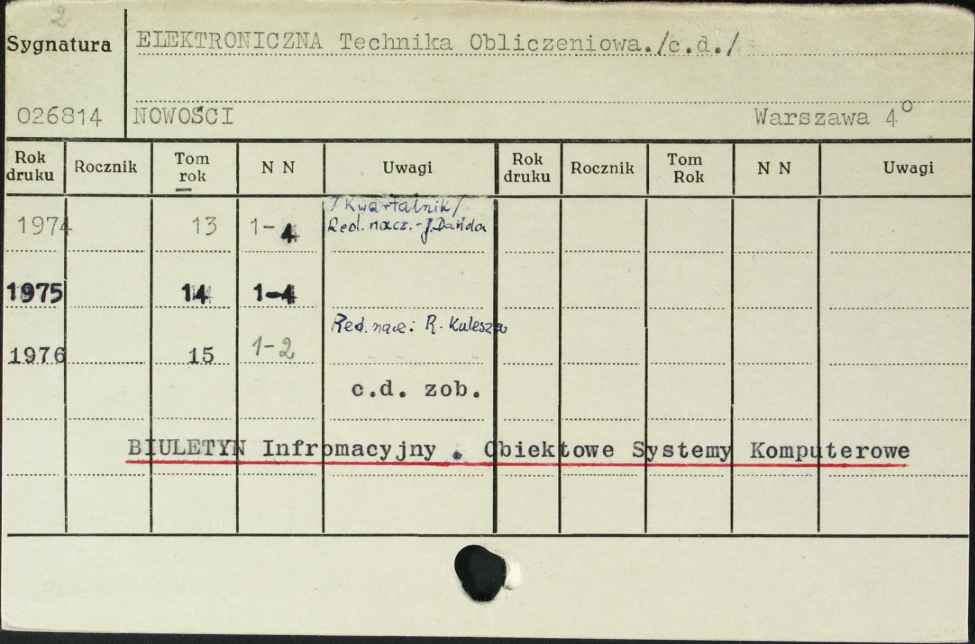 2
Sygnatura
ELEKTRONICZNA Technika Obliczeniowa./c.d./
026814
NOWOŚCI
Warszawa 4°
Rok druku Rocznik Tom rok N N Uwagi Rok druku Rocznik Tom Rok N N Uwagi
/Kwartalnik/
1974 13 1-4 Red. nacz.-J. Dańda
1975 14 1-4
Red. nacz: R. Kulesza
1976 15 1-2
c.d. zob.
BIULETYN Infromacyjny . Obiektowe Systemy Komputerowe